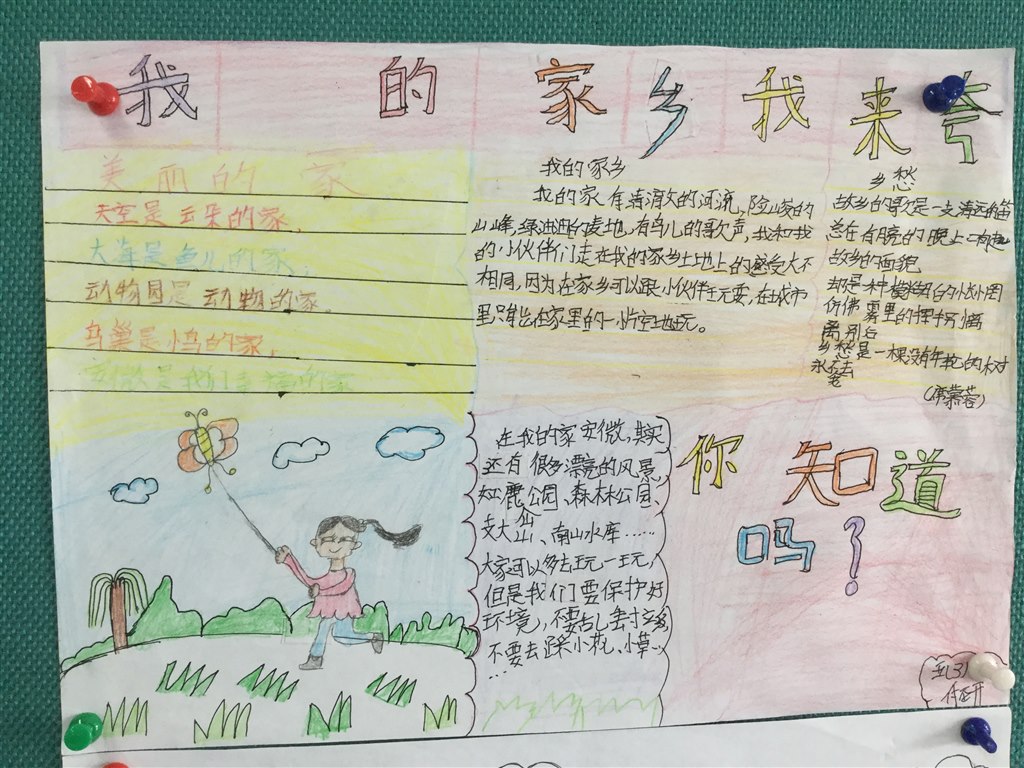 我的家乡我来夸
美丽的家
天空是云朵的家,
大海是鱼儿的家,
动物园是动物的家。
鸟巢是小鸟的家,
安徽是我们的家
我的家乡
我的家有清澈的河流,险峻的
山峰,绿油油的麦地,有鸟儿的歌声,我和我
的小伙伴们走在我的家乡土地上的感受大不
相同,因为在家乡可以跟小伙伴玩耍,在城市
里只能在家里的一片空地玩。
乡愁
故乡的歌是一支清远的笛
总在有月亮的晚上响起
故乡的面貌
却是一种模糊的怅惘
仿佛雾里的挥手别离
离别后
乡愁是一棵没有年轮的树
永不老去
(席慕蓉)
在我的家安徽,其实
还有很多漂亮的风景,
如鹿公园、森林公园、
大山、南山水库……
大家可以多去玩一玩,
但是我们要保护好
环境,不要乱丢垃圾,
不要去踩小花、小草……
你知道
吗?